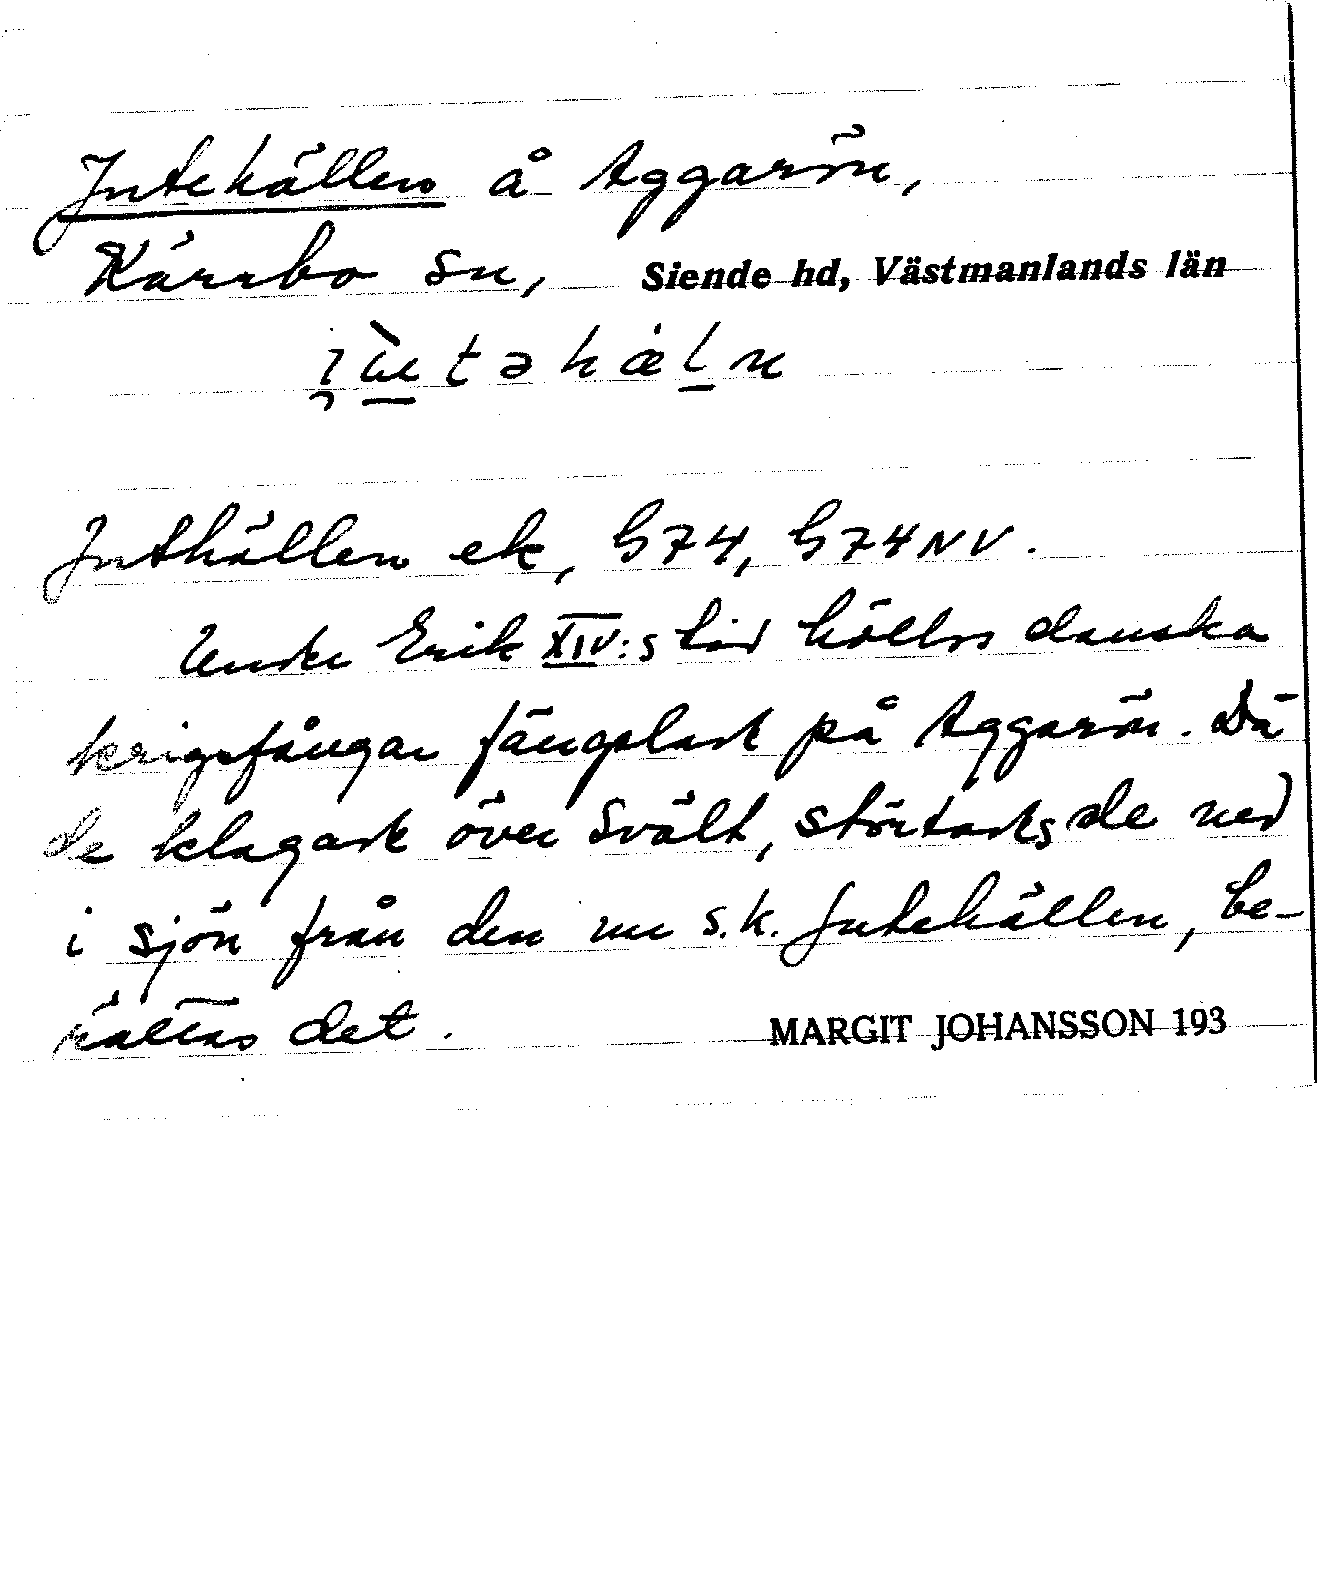 Jutehällen å Aggarön,
Kärrbo sn, Siende hd, Västmanlands län
Juthällen ek, G74, G74NV.
Under Erik XIV:s tid hölls danska
krigsfångar fängslade på Aggarön. Då
de klagade över svält, störtades de ned
i sjön från den nu s.k. Jutehällen, be-
rättas det.
MARGIT JOHANSSON 193